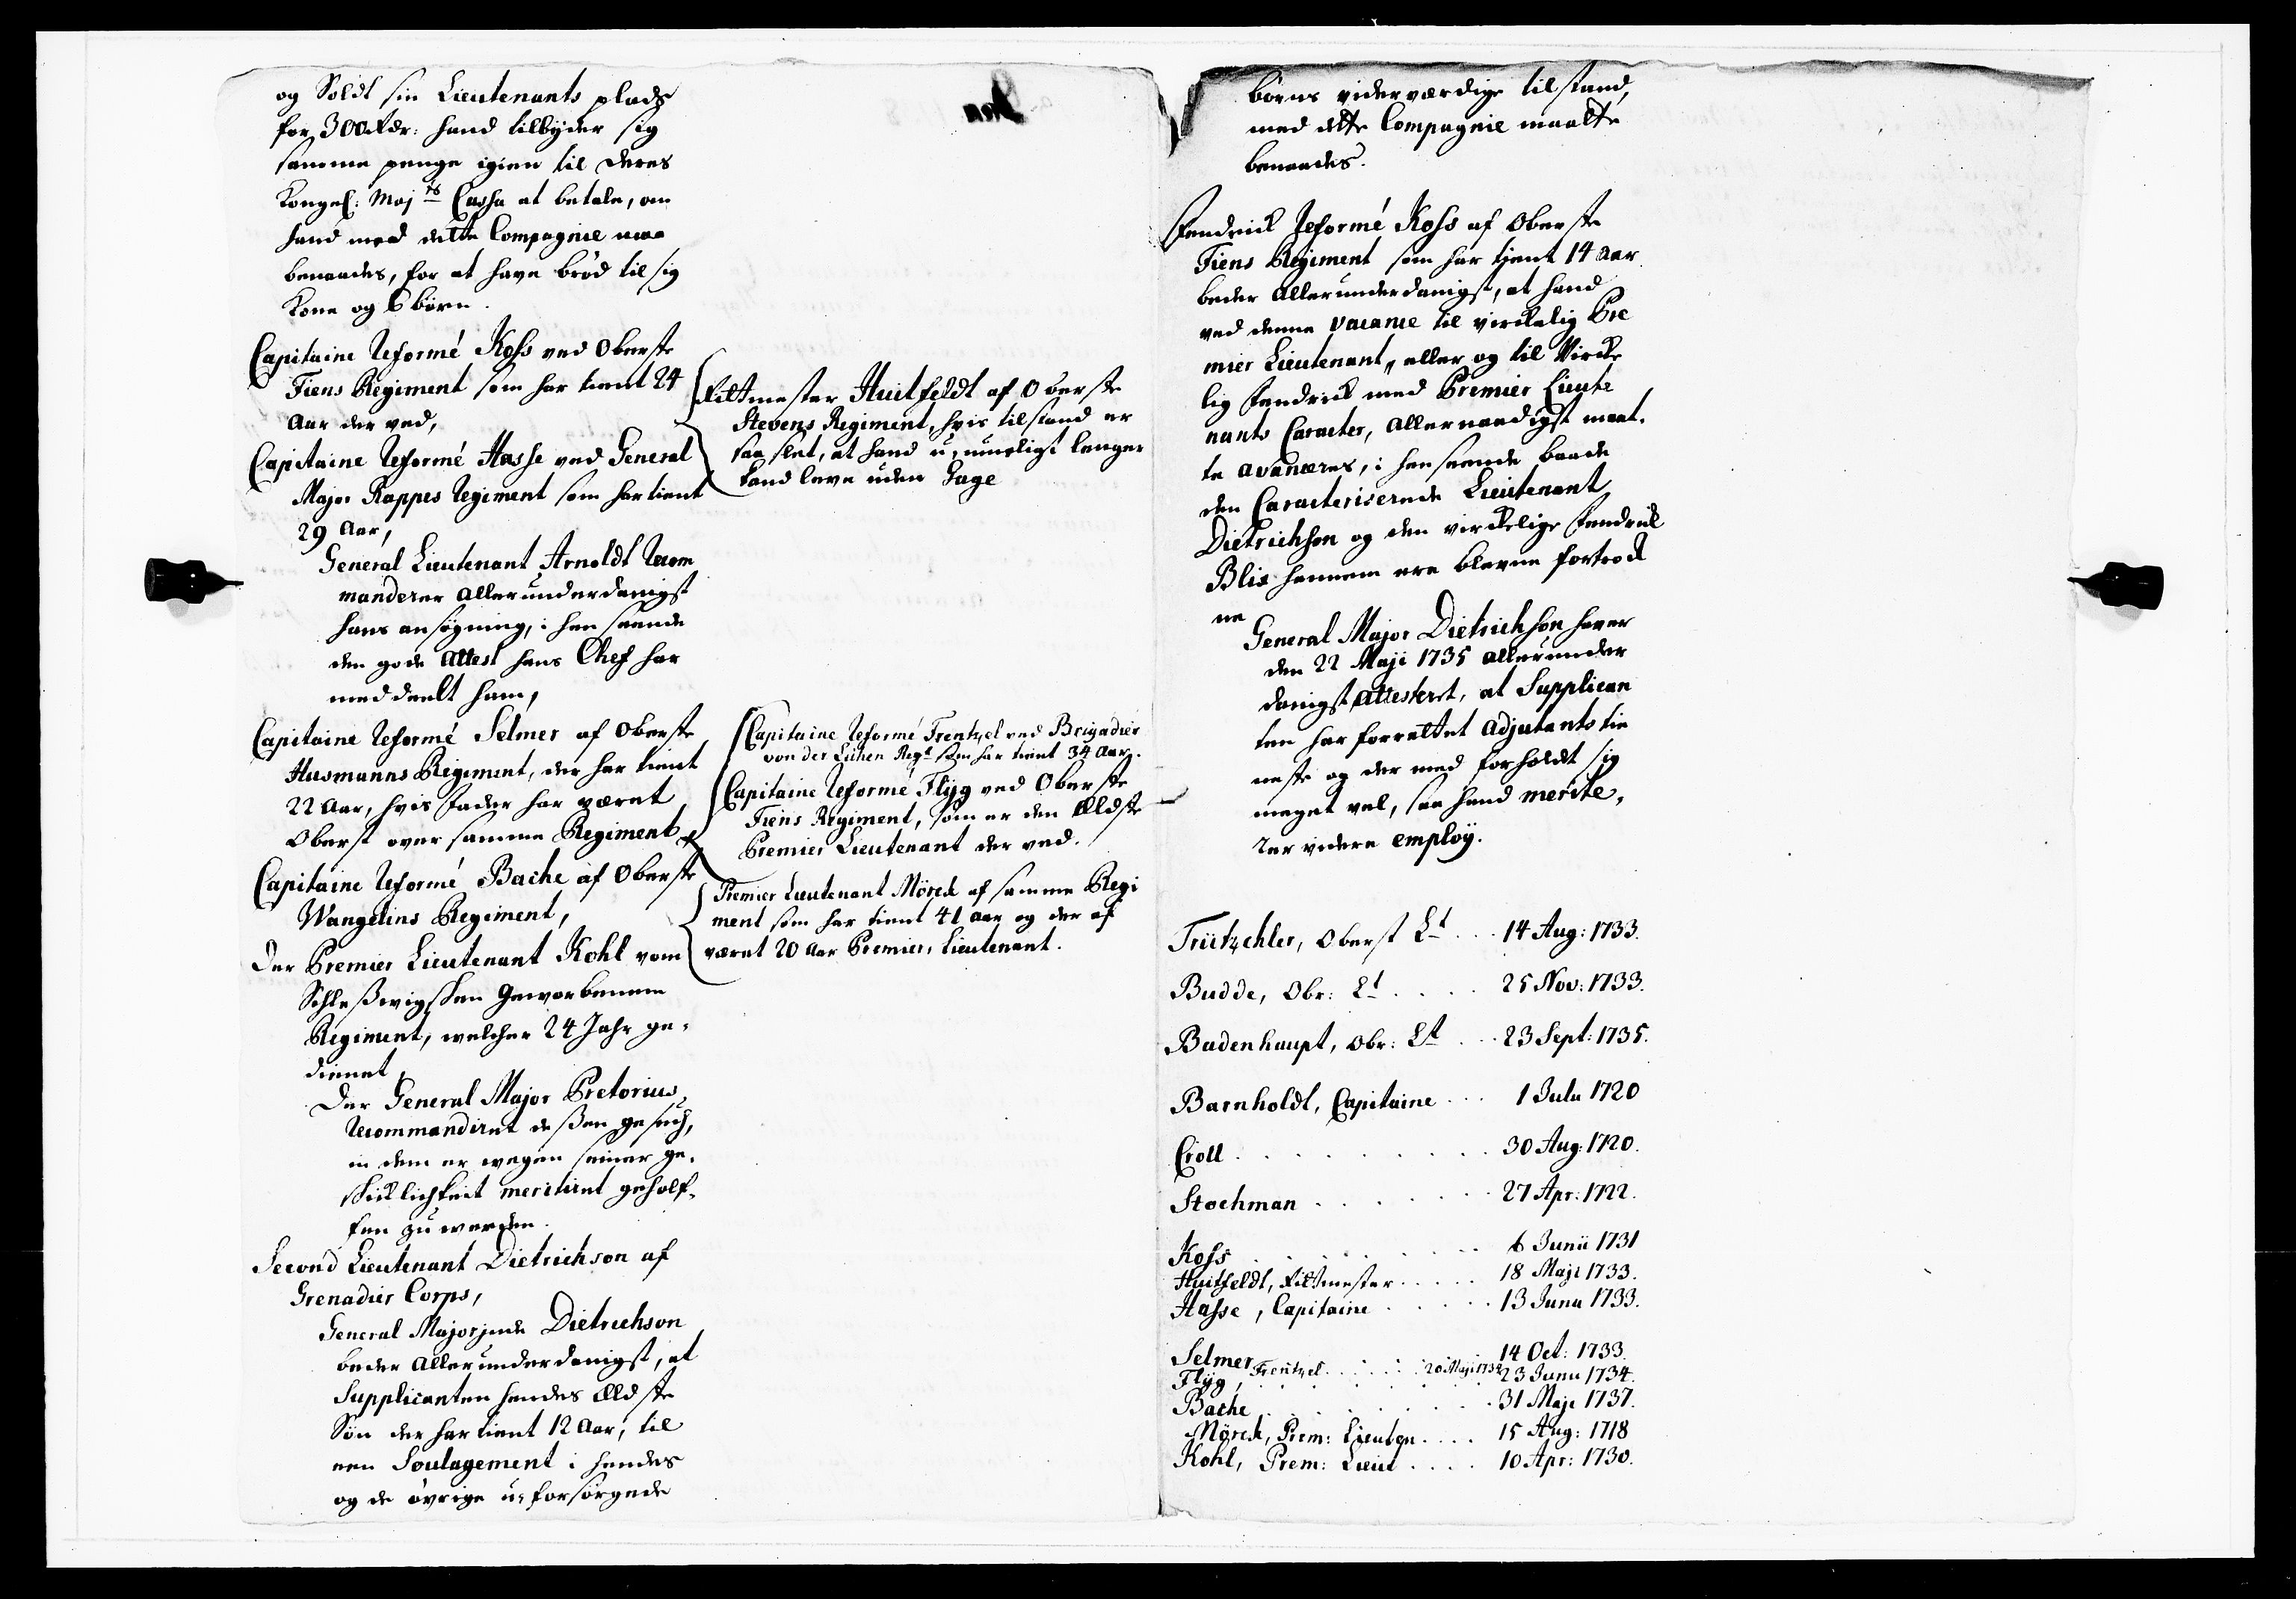 og Soldt sin Lieutenants plads
for 300 Rdr: hand tilbyder sig
samme penge igien til Deres
Kongel: Maj:ts Cassa at betale, om
hand med dette Compagnie maa
benaades, for at have brød til sig
Kone og 6 børn.
Capitaine Reformé Koss ved Oberste
Fiens Regiment som har tient 24
Aar der ved,
Capitaine Reformé Hasse ved General
Major Rappes Regiment som har tient
29 Aar,
General Lieutenant Arnoldt Recom
manderer allerunderdanigst
hans ansøgning, i henseende
den gode Attest hans Chef har
meddeelt ham,
Capitaine Reformé Selmer af Oberste
Husmanns Regiment, der har tient
22 Aar, hvis Fader har været
Oberst over samme Regiment
Capitaine Reformé Bache af Oberste
Wangelins Regiment,
Der Premier Lieutenant Kohl vom
Schleßwigschen Geworbenem
Regiment, welcher 24 Jahr ge-
dienet,
Der General Major Pretorius,
Recommandiret deßen gesuch,
in dem er wegen seiner ge-
schicklichkeit meritiret geholf-
fen zu werden.
Second Lieutenant Dietrichson af
Grenadier Corps,
General Majorinde Dietrichson
beder Allerunderdanigst, at
Supplicanten hendes Eldste
Søn der har tient 12 Aar, til
een Soulagement i hendes
og de øvrige u-forsørgede
Ritmester Huitfeldt af Oberste
Stevens Regiment, hvis tilstand er
saa slet, at hand u-mueligt lenger
kand leve uden Gage
Capitaine Reformé Frentzel ved Brigadier
von der Lühen Regt som har tient 34 Aar.
Capitaine Reformé Flÿg ved Oberste
Fiens Regiment, som er den Eldste
Premier Lieutenant der ved.
Premier Lieutenant Mörck af samme Regi
ment som har tient 41 Aar og der af
været 20 Aar Premier Lieutenant.
børns viderværdige tilstand,
med dette Compagnie maatte
benaades.
Fendrick Reformé Koss af Oberste
Fiens Regiment som har tient 14 Aar
beder Allerunderdanigst, at hand
ved denne vacance til virkelig Pre
mier Lieutenant, eller og til Virke
lig Fendrick med Premier Lieute
nants Caracter, Allernaadigst maat-
te avanceres, i henseende baade
den Caracteriserede Lieutenant
Dietrichson og den virkelige Fendrick
Blix hannem ere blevne fortrock
ne
General Major Dietrichson haver
den 22 Maji 1735 allerunder
danigst Attesteret, at Supplican
ten har forrettet Adjutants tie
neste og der med forholdt sig
meget vel, saa hand merite-
rer videre employ.
Trützchler, Oberst Lt . . . 14 Aug: 1733.
Budde, Obr: Lt . . . . 25 Nov: 1733.
Budenhaupt, Obr: Lt . . . 23 Sept: 1735.
Barnholdt, Capitaine . . . 1 Julii 1720
Croll . . . . . . . . . . 30 Aug: 1720.
Stochman . . . . . . . 27 Apr: 1722.
Koss . . . . . . . . . 6 Junii 1731
Huitfeldt, Ritmester . . . . . 18 Maji 1733.
Hasse, Capitaine . . . . . 13 Junii 1733.
Selmer 14 Oct: 1733.
Frentzel . . . . . . . 20 Maji 1734
Flÿg, . . . . . . . . 23 Junii 1734.
Bache . . . . . . . . . 31 Maji 1737.
Mörck, Prem: Lieuten . . . . 15 Aug: 1718
Kohl, Prem: Lieut . . . . 10 Apr: 1730.